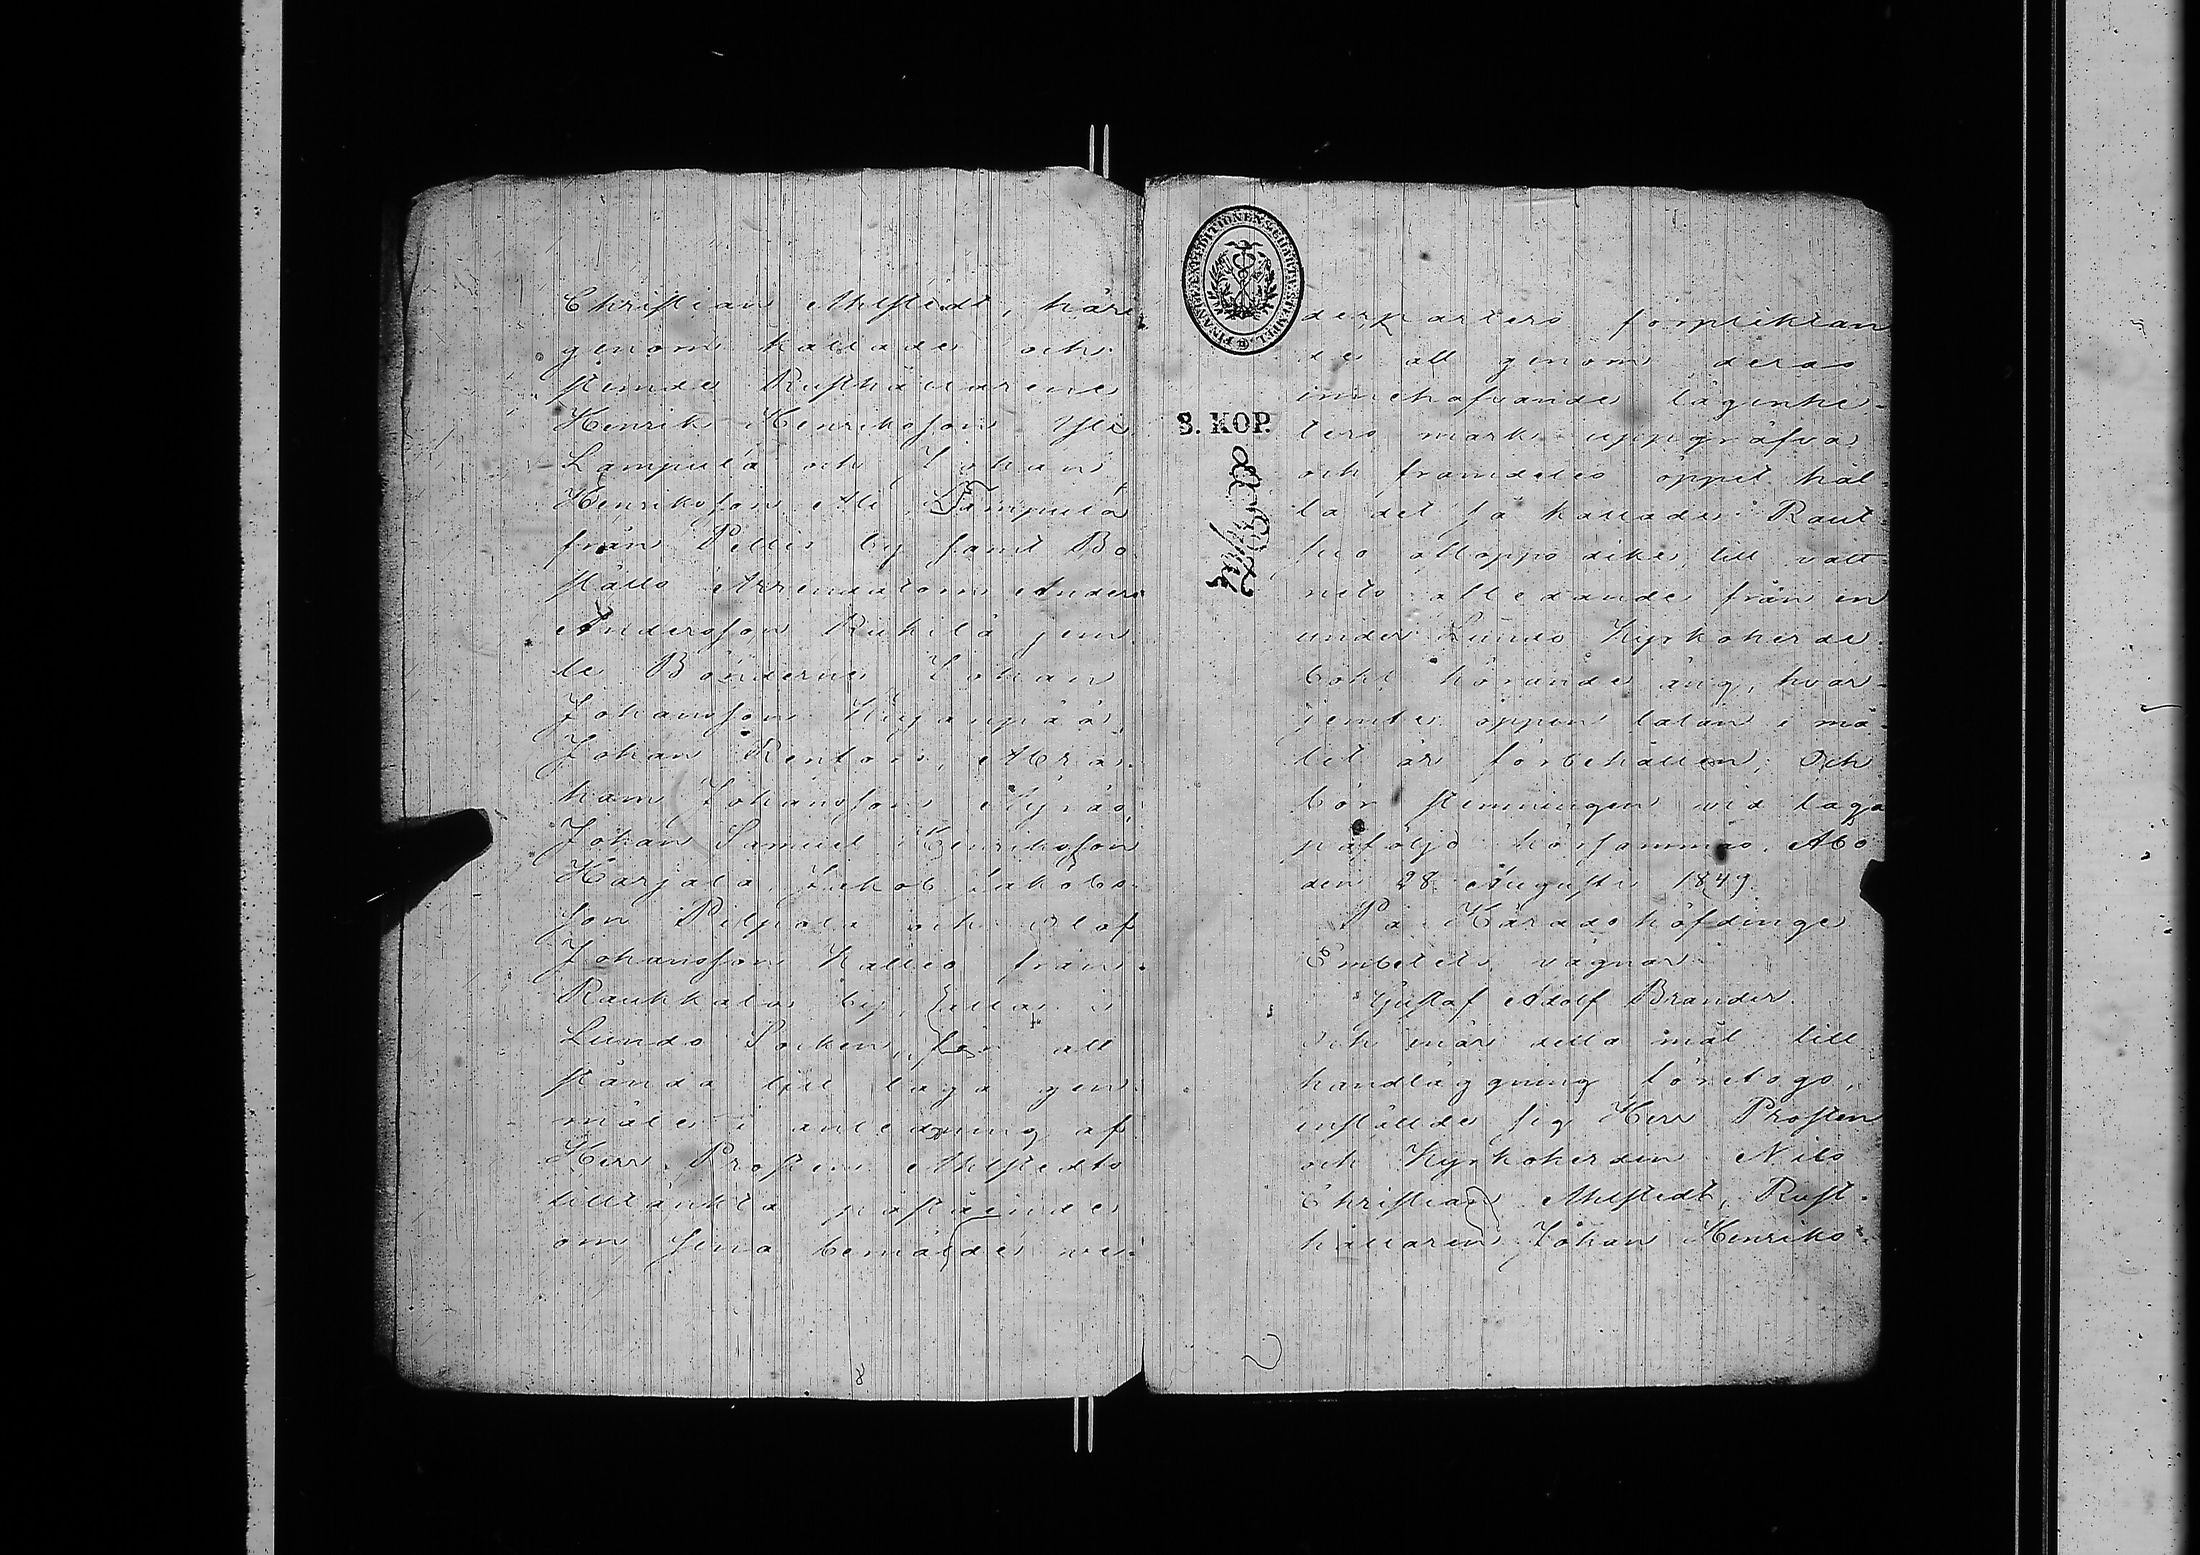 Christian Ahlstedt, häri-
genom kallade och
stemde Rusthållarene
Henrik Henriksson Yli
Lampula och Johan
Henriksson Ali Tampula
från Pellis by samt Bo
ställs Arrendatorn Anders
Andersson Ruhila jem
te Bönderne Johan
Johansson Kujanpää,
Johan Rentois, Abra
ham Johansson Nyrää,
Johan Samuel Henriksson
Karjala, Jakob Jakobs
son Pilpala och Olof
Johansson Kallio från
Raukkala by, alla i
Lundo Socken, för att
stånda till laga gen
mäle i anledning af
Herr Prosten Ahlstedts
tilltänkta påstående
om sina bemälde we-
8
FINANCE EXPEDITIONENS
3. KOP.
derparters förpliktan
de att genom deras
innehafvande lägenhe-
ters mark uppgräfva
och framdeles öppet hål-
la det så kallade Raut
suo afloppsdike till vatt-
nets afledande från en
under Lundo Kyrkoherde
bohl hörande äng, hvar-
jemte öppen talan i må-
let är förbehållen; Och
bör stemningen vid laga
påföljd hörsammas. Åbo
den 28 Augusti 1849.
På Häradshöfdinge
Embetets vägnar
Gustaf Adolf Brander.
Och när detta mål till
handläggning företogs,
inställde sig Herr Prosten
och Kyrkoherden Nils
Christian Ahlstedt, Rust-
hållaren Johan Henriks-